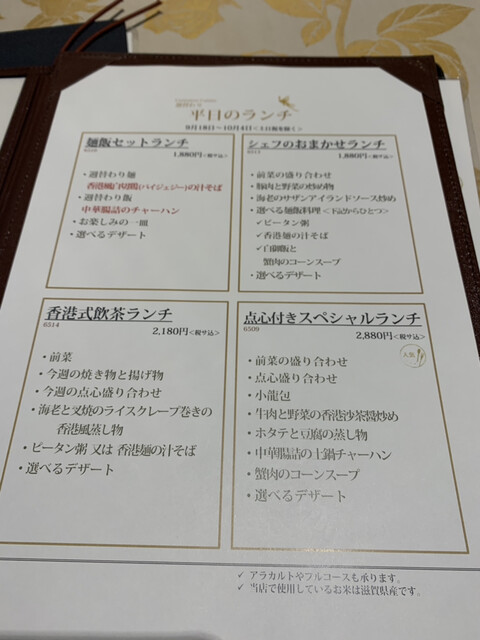 平日のランチ
9月18日～10月4日<土日祝を除く>
麺飯セットランチ
1,880円<税サ込>
・週替わり麺
香港風白切鶏(バイジェジー)の汁そば
・週替わり飯
中華腸詰のチャーハン
・お楽しみの一皿
・選べるデザート
シェフのおまかせランチ
1,880円<税サ込>
・前菜の盛り合わせ
・豚肉と野菜の炒め物
・海老のサザンアイランドソース炒め
・選べる麺飯料理<下記からひとつ>
✓ピータン粥
✓香港麺の汁そば
✓白御飯と
蟹肉のコーンスープ
・選べるデザート
香港式飲茶ランチ
6514
2,180円<税サ込>
・前菜
・今週の焼き物と揚げ物
・今週の点心盛り合わせ
・海老と叉焼のライスクレープ巻きの
香港風蒸し物
・ピータン粥 又は 香港麺の汁そば
・選べるデザート
点心付きスペシャルランチ
6509
2,880円<税サ込>
人気
・前菜の盛り合わせ
・点心盛り合わせ
・小籠包
・牛肉と野菜の香港沙茶醤炒め
・ホタテと豆腐の蒸し物
・中華腸詰の土鍋チャーハン
・蟹肉のコーンスープ
・選べるデザート
✓アラカルトやフルコースも承ります。
✓当店で使用しているお米は滋賀県産です。